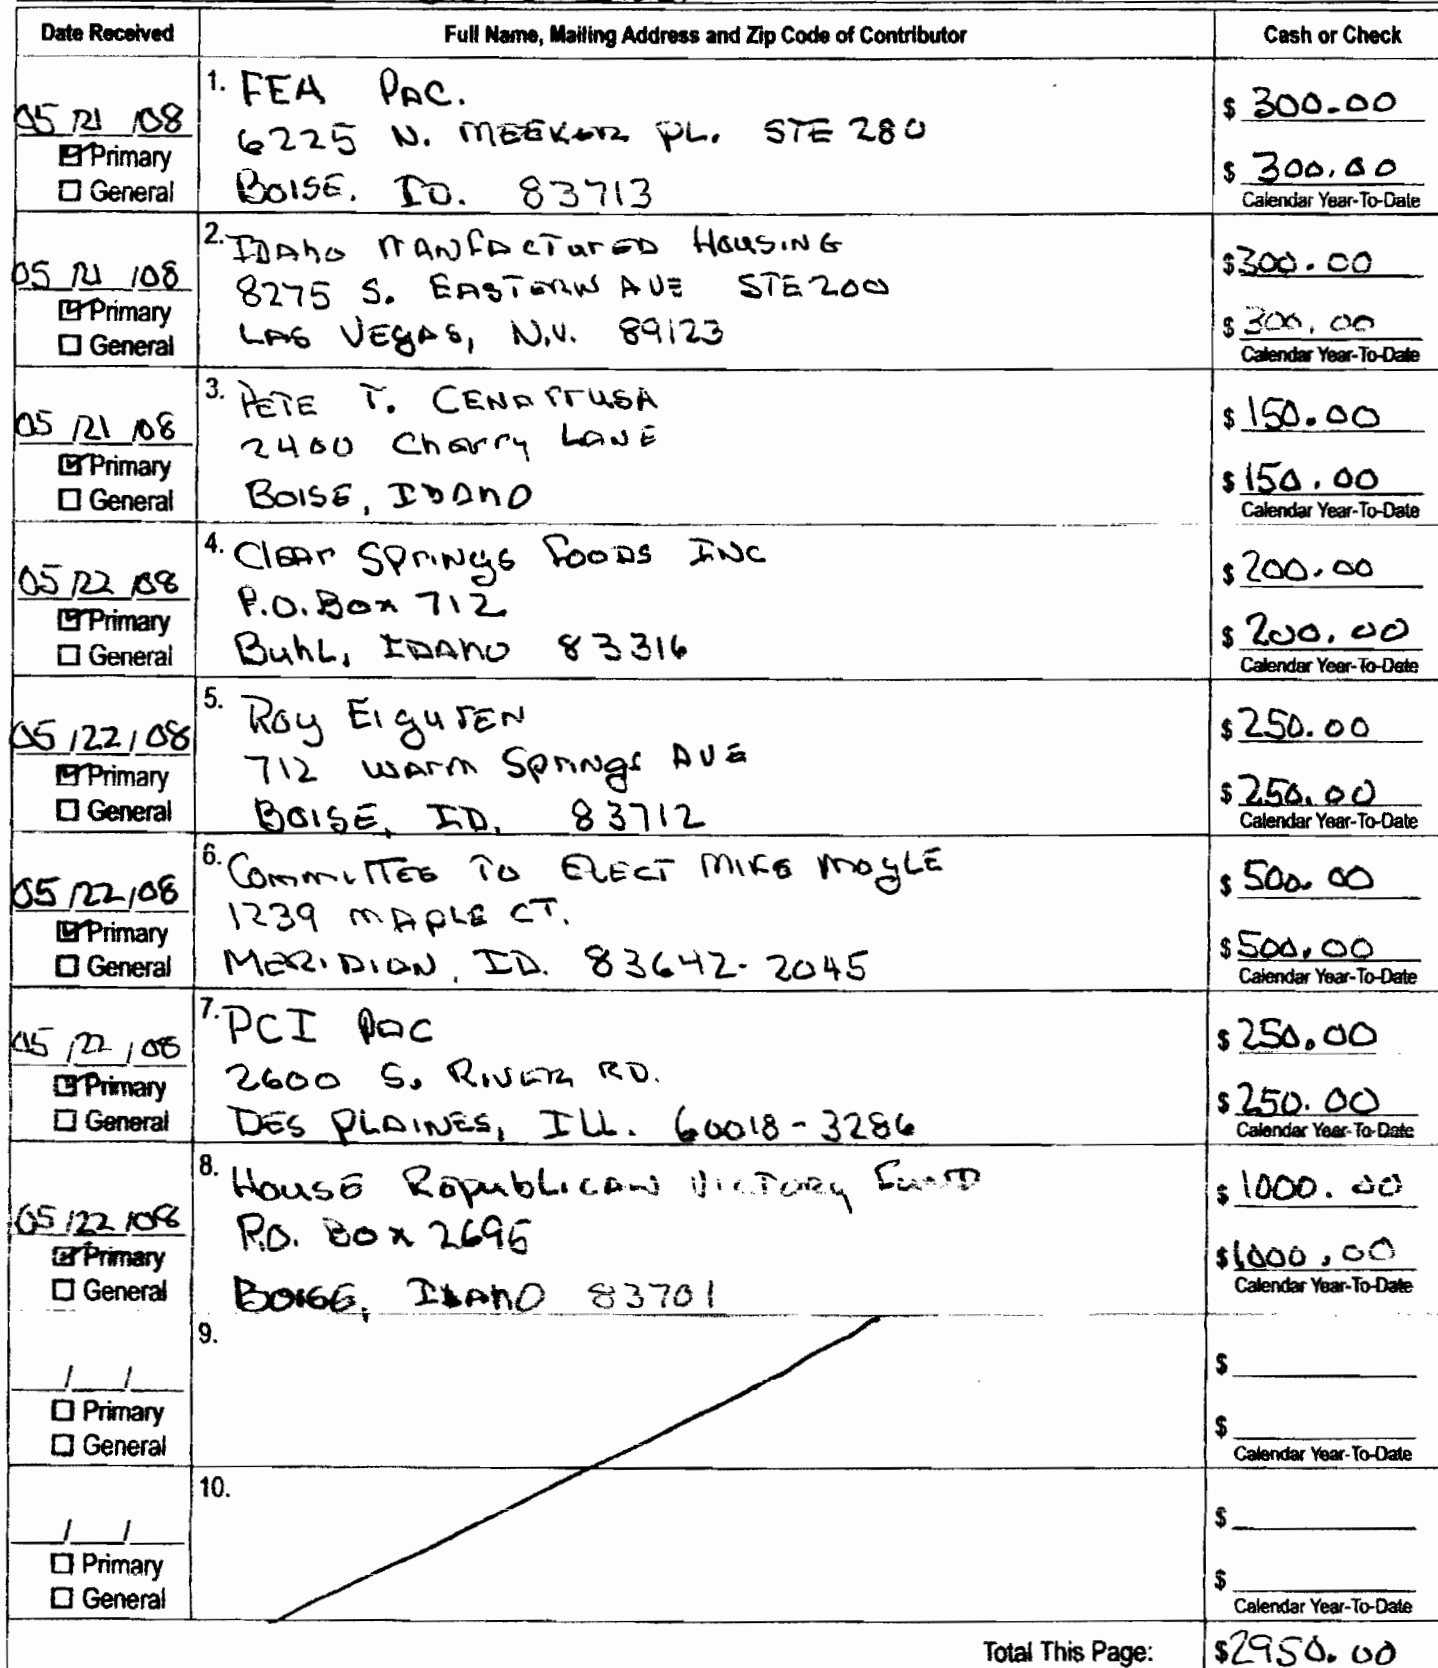 Date Received Full Name, Mailing Address and Zip Code of Contributor Cash or Check
05 /21 /08
Primary
General
1. FEA PAC.
6225 N. MEEKER PL. STE 280
BOISE, ID. 83713
$ 300.00
$ 300.00
Calendar Year-To-Date
05 /21 /08
Primary
General
2. IDAHO MANFACTURED HOUSING
8275 S. EASTERN AVE STE 200
LAS VEGAS, N.V. 89123
$300.00
$ 300.00
Calendar Year-To-Date
05 /21 /08
Primary
General
3. PETE T. CENARRUSA
2400 Cherry LANE
BOISE, IDAHO
$ 150.00
$ 150.00
Calendar Year-To-Date
05 /22 /08
Primary
General
4. Clear Springs Foods INC
P.O. Box 712
Buhl, IDAHO 83316
$ 200.00
$ 200.00
Calendar Year-To-Date
05 /22 /08
Primary
General
5. Roy Eiguren
712 WARM Springs AVE
BOISE, ID. 83712
$ 250.00
$ 250.00
Calendar Year-To-Date
05 /22 /08
Primary
General
6. Committee To ELECT MIKE MOYLE
1239 MAPLE CT.
MERIDIAN, ID. 83642-2045
$ 500.00
$ 500.00
Calendar Year-To-Date
05 /22 /08
Primary
General
7. PCI PAC
2600 S. RIVER RD.
DES PLAINES, ILL. 60018-3286
$ 250.00
$ 250.00
Calendar Year-To-Date
05 /22 /08
Primary
General
8. House Republican Victory Fund
P.O. Box 2695
BOISE, IDAHO 83701
$ 1000.00
$1000.00
Calendar Year-To-Date
/ /
Primary
General
9.
$
$
Calendar Year-To-Date
/ /
Primary
General
10.
$
$
Calendar Year-To-Date
Total This Page: $2950.00